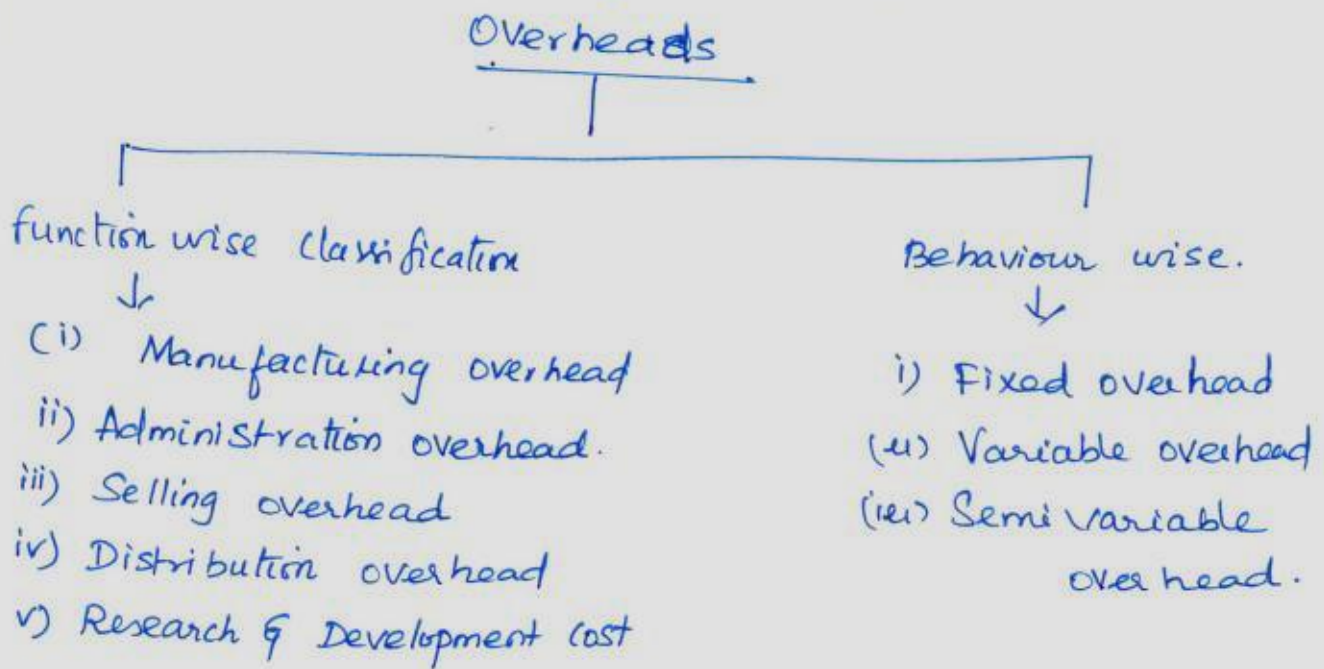 Overheads
function wise classification
(i) Manufacturing overhead
ii) Administration overhead.
iii) Selling overhead
iv) Distribution overhead
v) Research & Development cost
Behaviour wise.
i) Fixed overhead
(ii) Variable overhead
(iii) Semi variable
overhead.